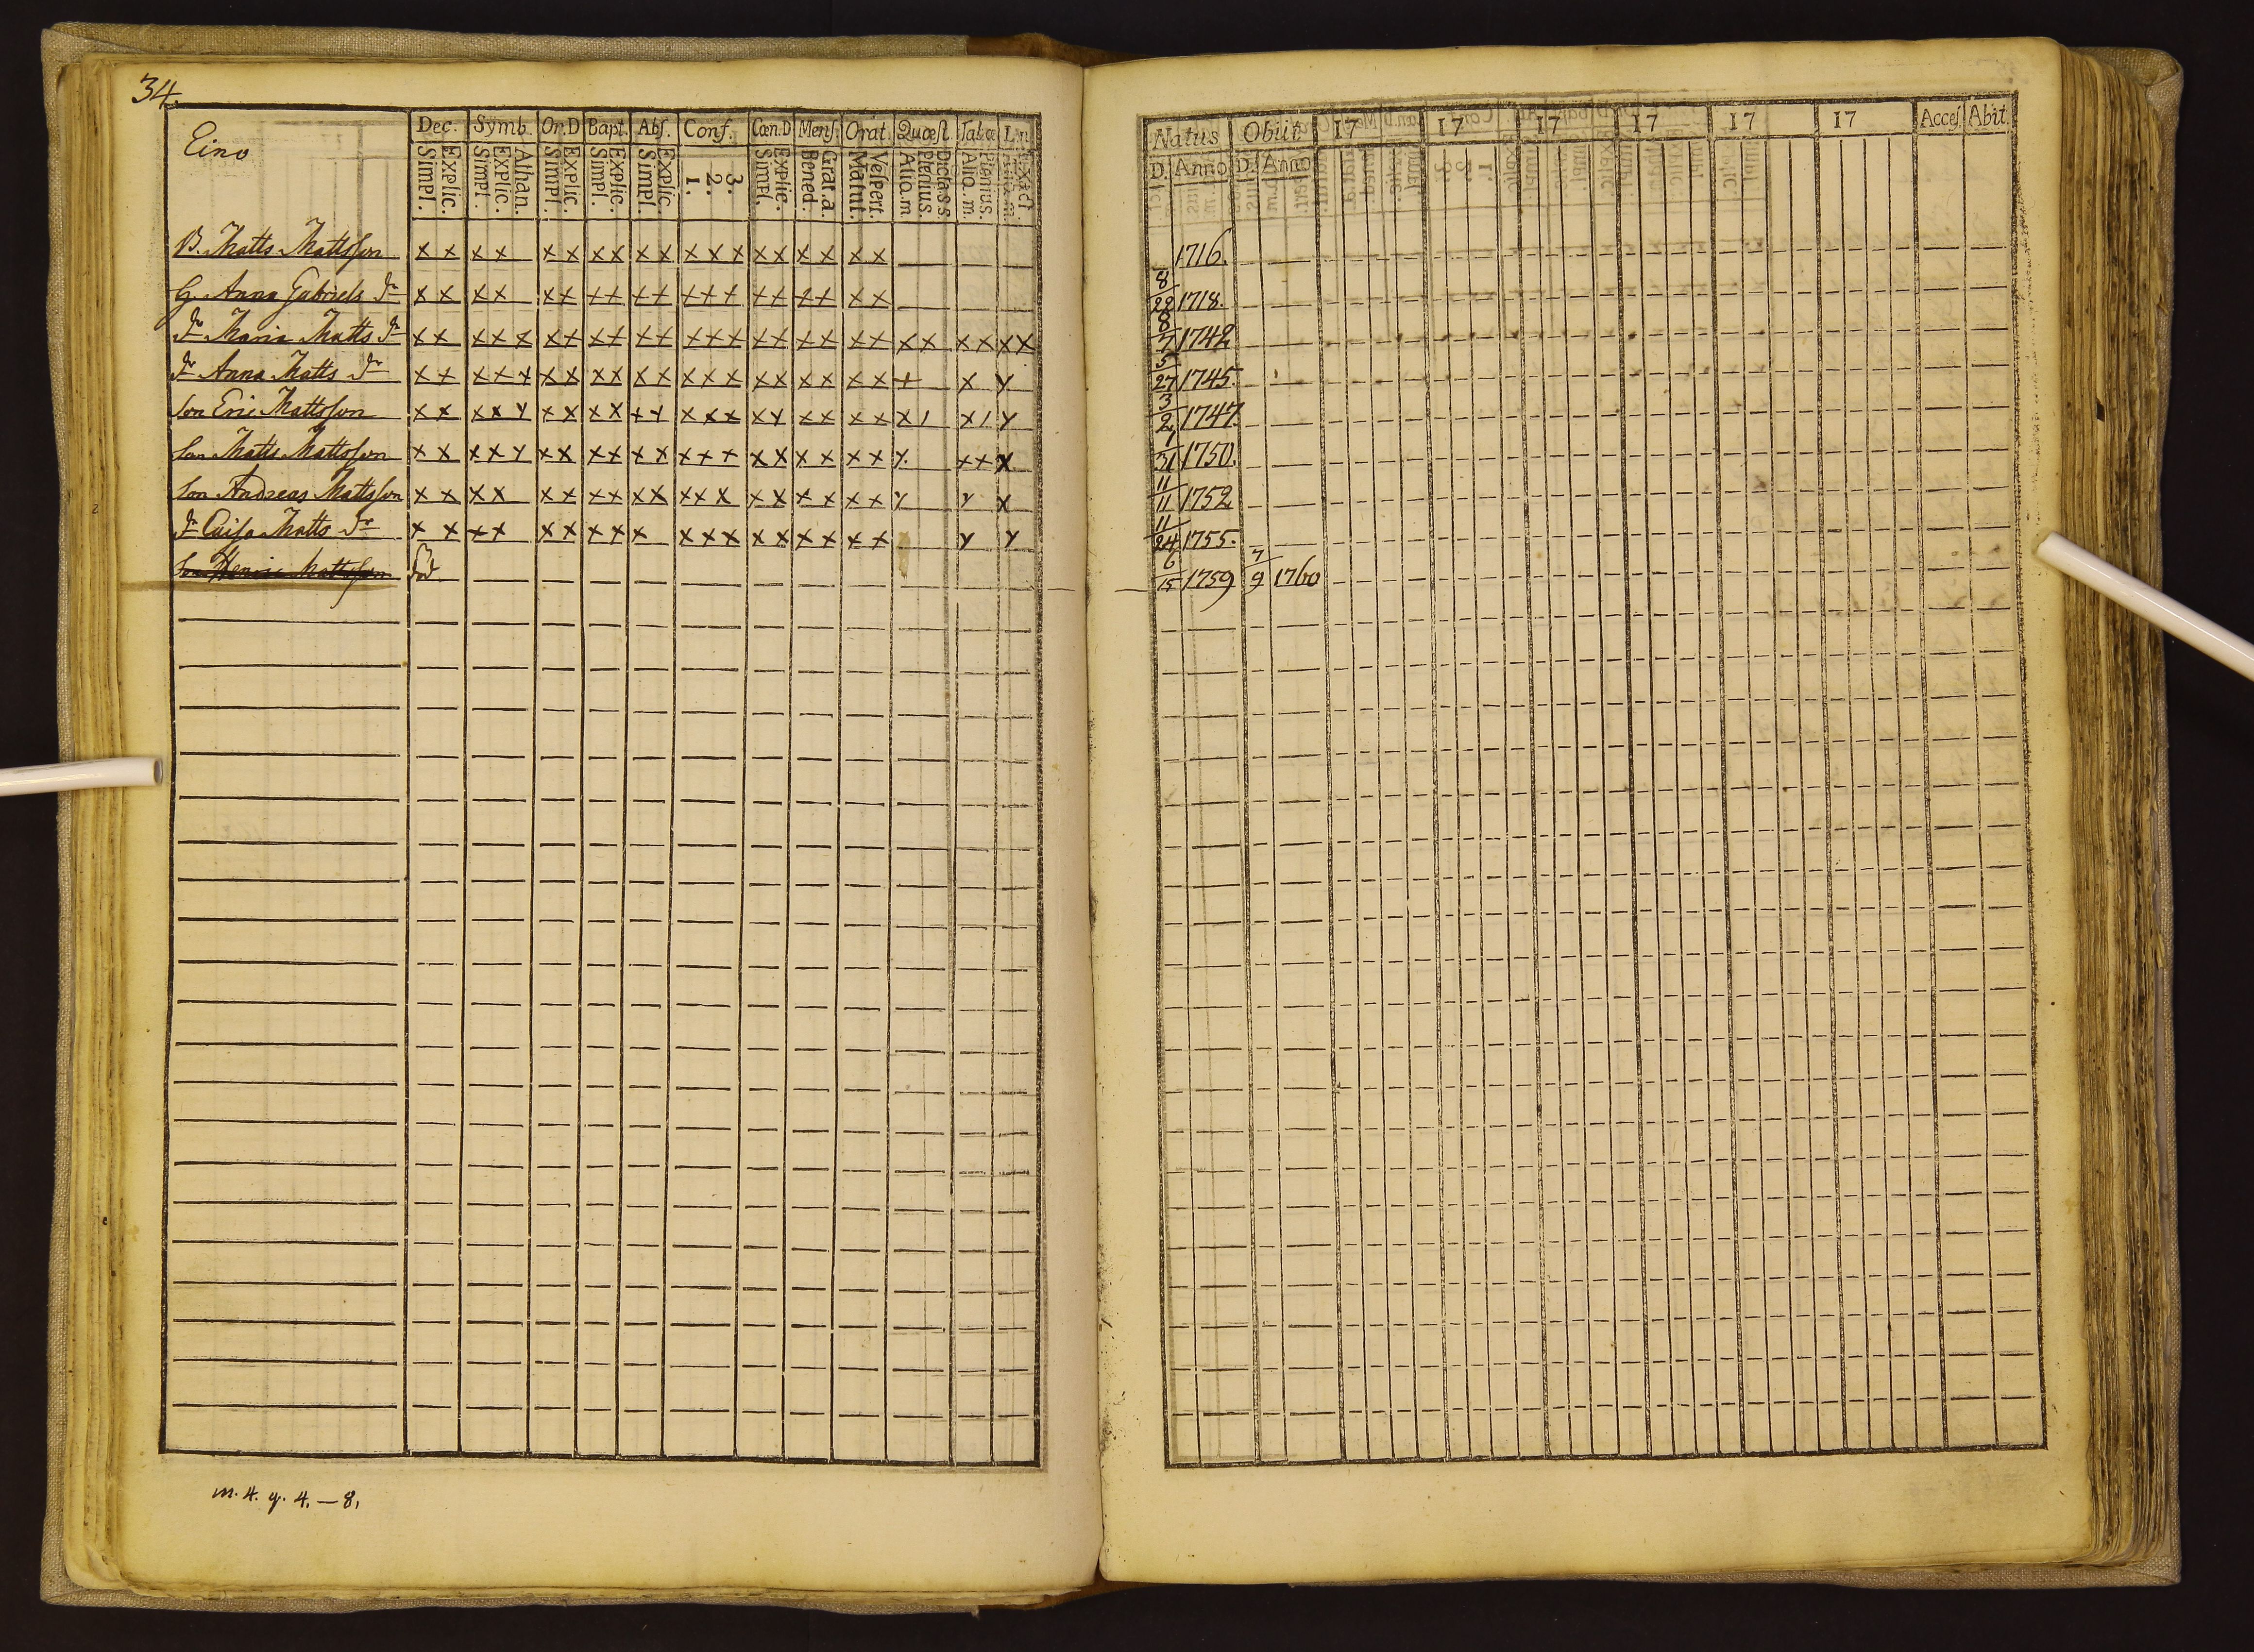 34.
Eino
Dec. Symb. Or.D Bapt. Abs. Conf. Cœn.D Mens. Orat. Quæst. Tabœ L.n.
Explic. Simpl. Athan. Explic. Simpl. Explic. Simpl. Explic. Simpl. Explic. Simpl. 3. 2. 1. Explic. Simpl. Grat.a. Bened. Vespert. Matut. Dicta s.s. Plenius. Aliq.m. Plenius. Aliq.m. Exact Aliq.m.
B. Matts Mattsson x x x x x x x x x x x x x x x x x x x
G. Anna Gabriels dr x x x x x x x x x x x x x x x x x x x
dr Maria Matts dr x x x x x x x x x x x x x x x x x x x x x x x x x x
dr Anna Matts dr x x x x x x x x x x x x x x x x x x x x x x y
Son Eric Mattsson x x x x y x x x x x y x x x x y x x x x x / x / y
Son Matts Mattsson x x x x y x x x x x x x x x x x x x x x y. x x x
Son Andreas Mattsson x x x x x x x x x x x x x x x x x x x y y x
dr Caisa Matts dr x x x x x x x x x x x x x x x x x x y y
Son Henric Mattsson död
m. 4. q. 4. — 8.
Natus Obiit 17 17 17 17 17 17 Acces Abit.
D. Anno D. Anno
1716.
8/22 1718.
8/7 1742
5/27 1745.
3/2 1747.
1/31 1750.
11/11 1752
11/24 1755.
6/15 1759 7/9 1760